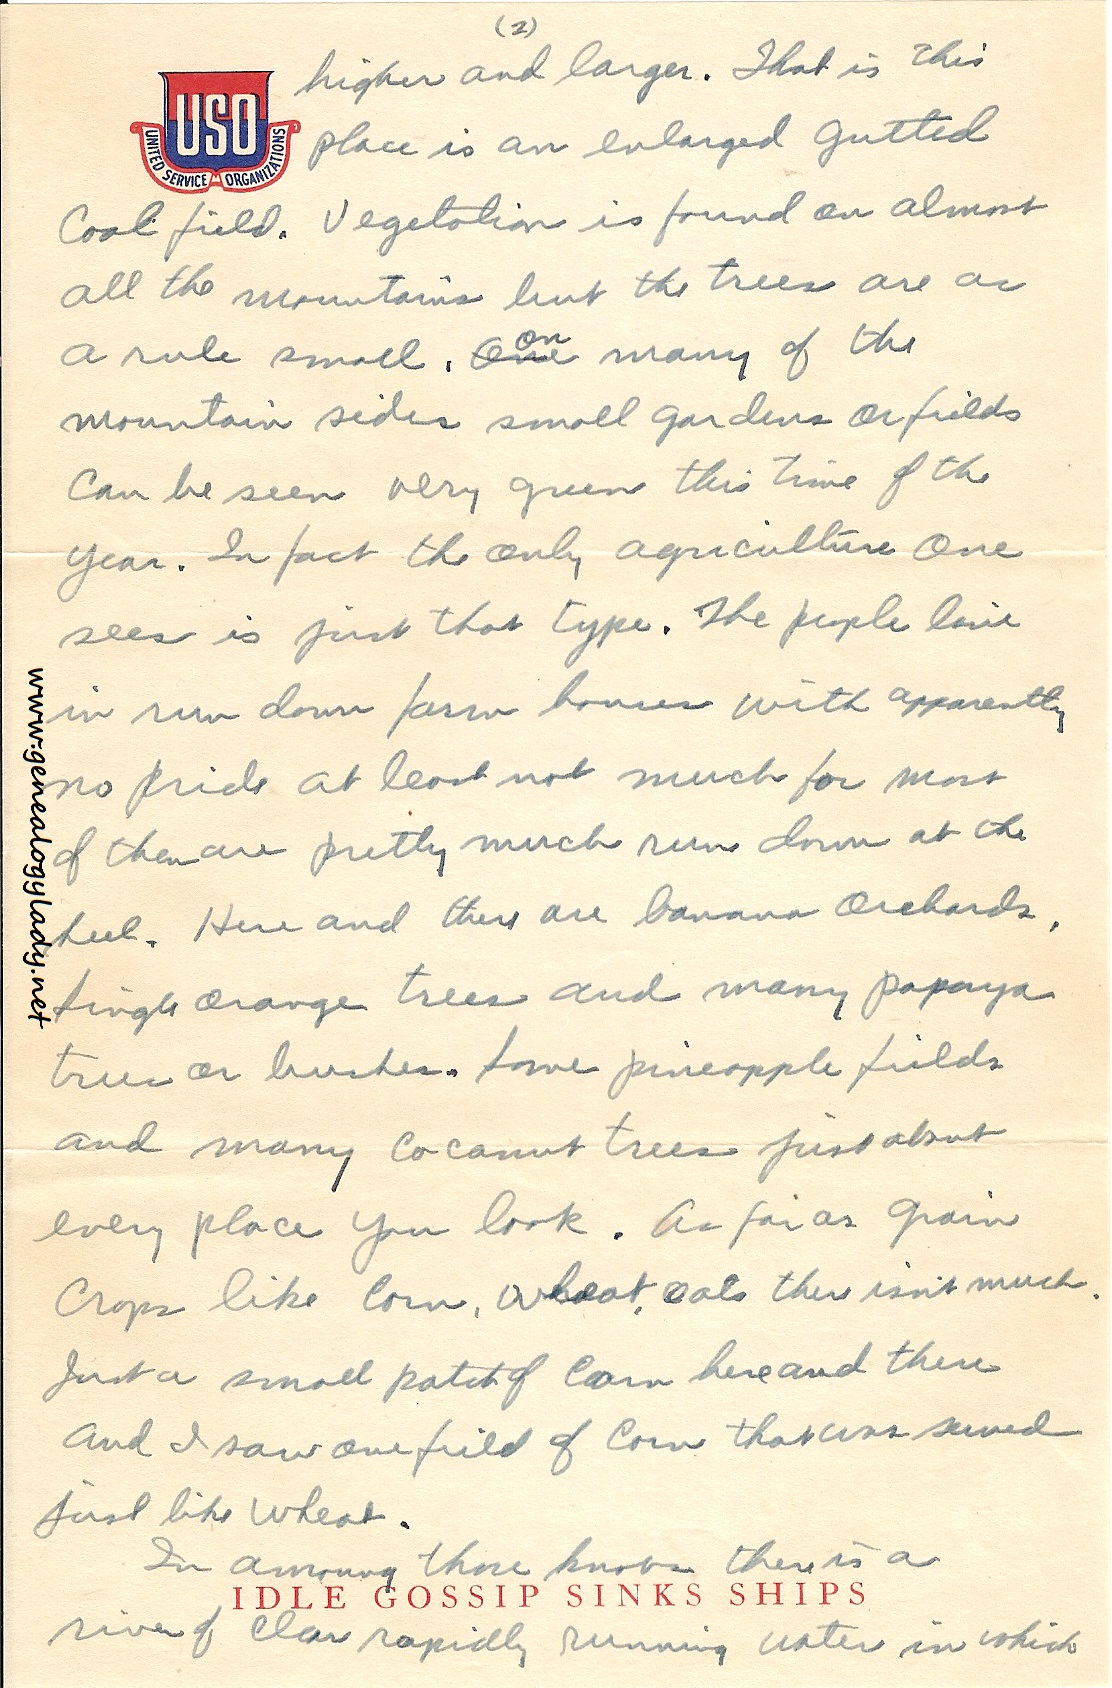 (2)
USO
UNITED SERVICE ORGANIZATIONS
higher and larger. That is this
place is an enlarged gutted
Coal field. Vegetation is found on almost
all the mountains but the trees are as
a rule small. One on many of the
mountain sides small gardens or fields
can be seen very green this time of the
year. In fact the only agriculture one
sees is just that type. The people live
in run down farm houses with apparently
no pride at least not much for most
of them are pretty much run down at the
heel. Here and there are banana orchards,
single orange trees and many papaya
trees or bushes. Some pineapple fields
and many cocanut trees just about
every place you look. As far as grain
crops like corn, wheat, oats there isn't much.
Just a small patch of corn here and there
and I saw one field of corn that was sowed
just like wheat.
In among those knobs there is a
IDLE GOSSIP SINKS SHIPS
river of clear rapidly running water in which
www.genealogylady.net